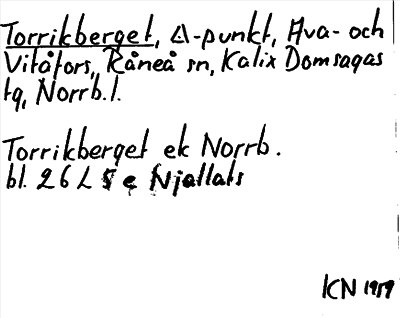 Torrikberget, Δ-punkt, Ava- och
Vitåfors, Råneå sn, Kalix Domsagas
tg, Norrb.l.
Torrikberget ek Norrb.
bl. 26 L 5 e Njallats
KN 1959